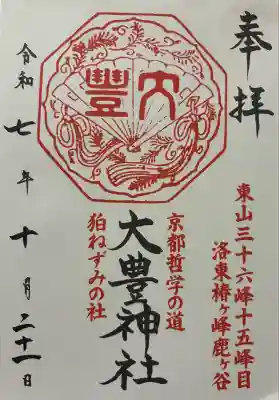 奉拝
東山三十六峰十五峰目
洛東椿ヶ峰鹿ヶ谷
大豐
京都哲学の道
大豊神社
狛ねずみの社
令和七年十月二十二日